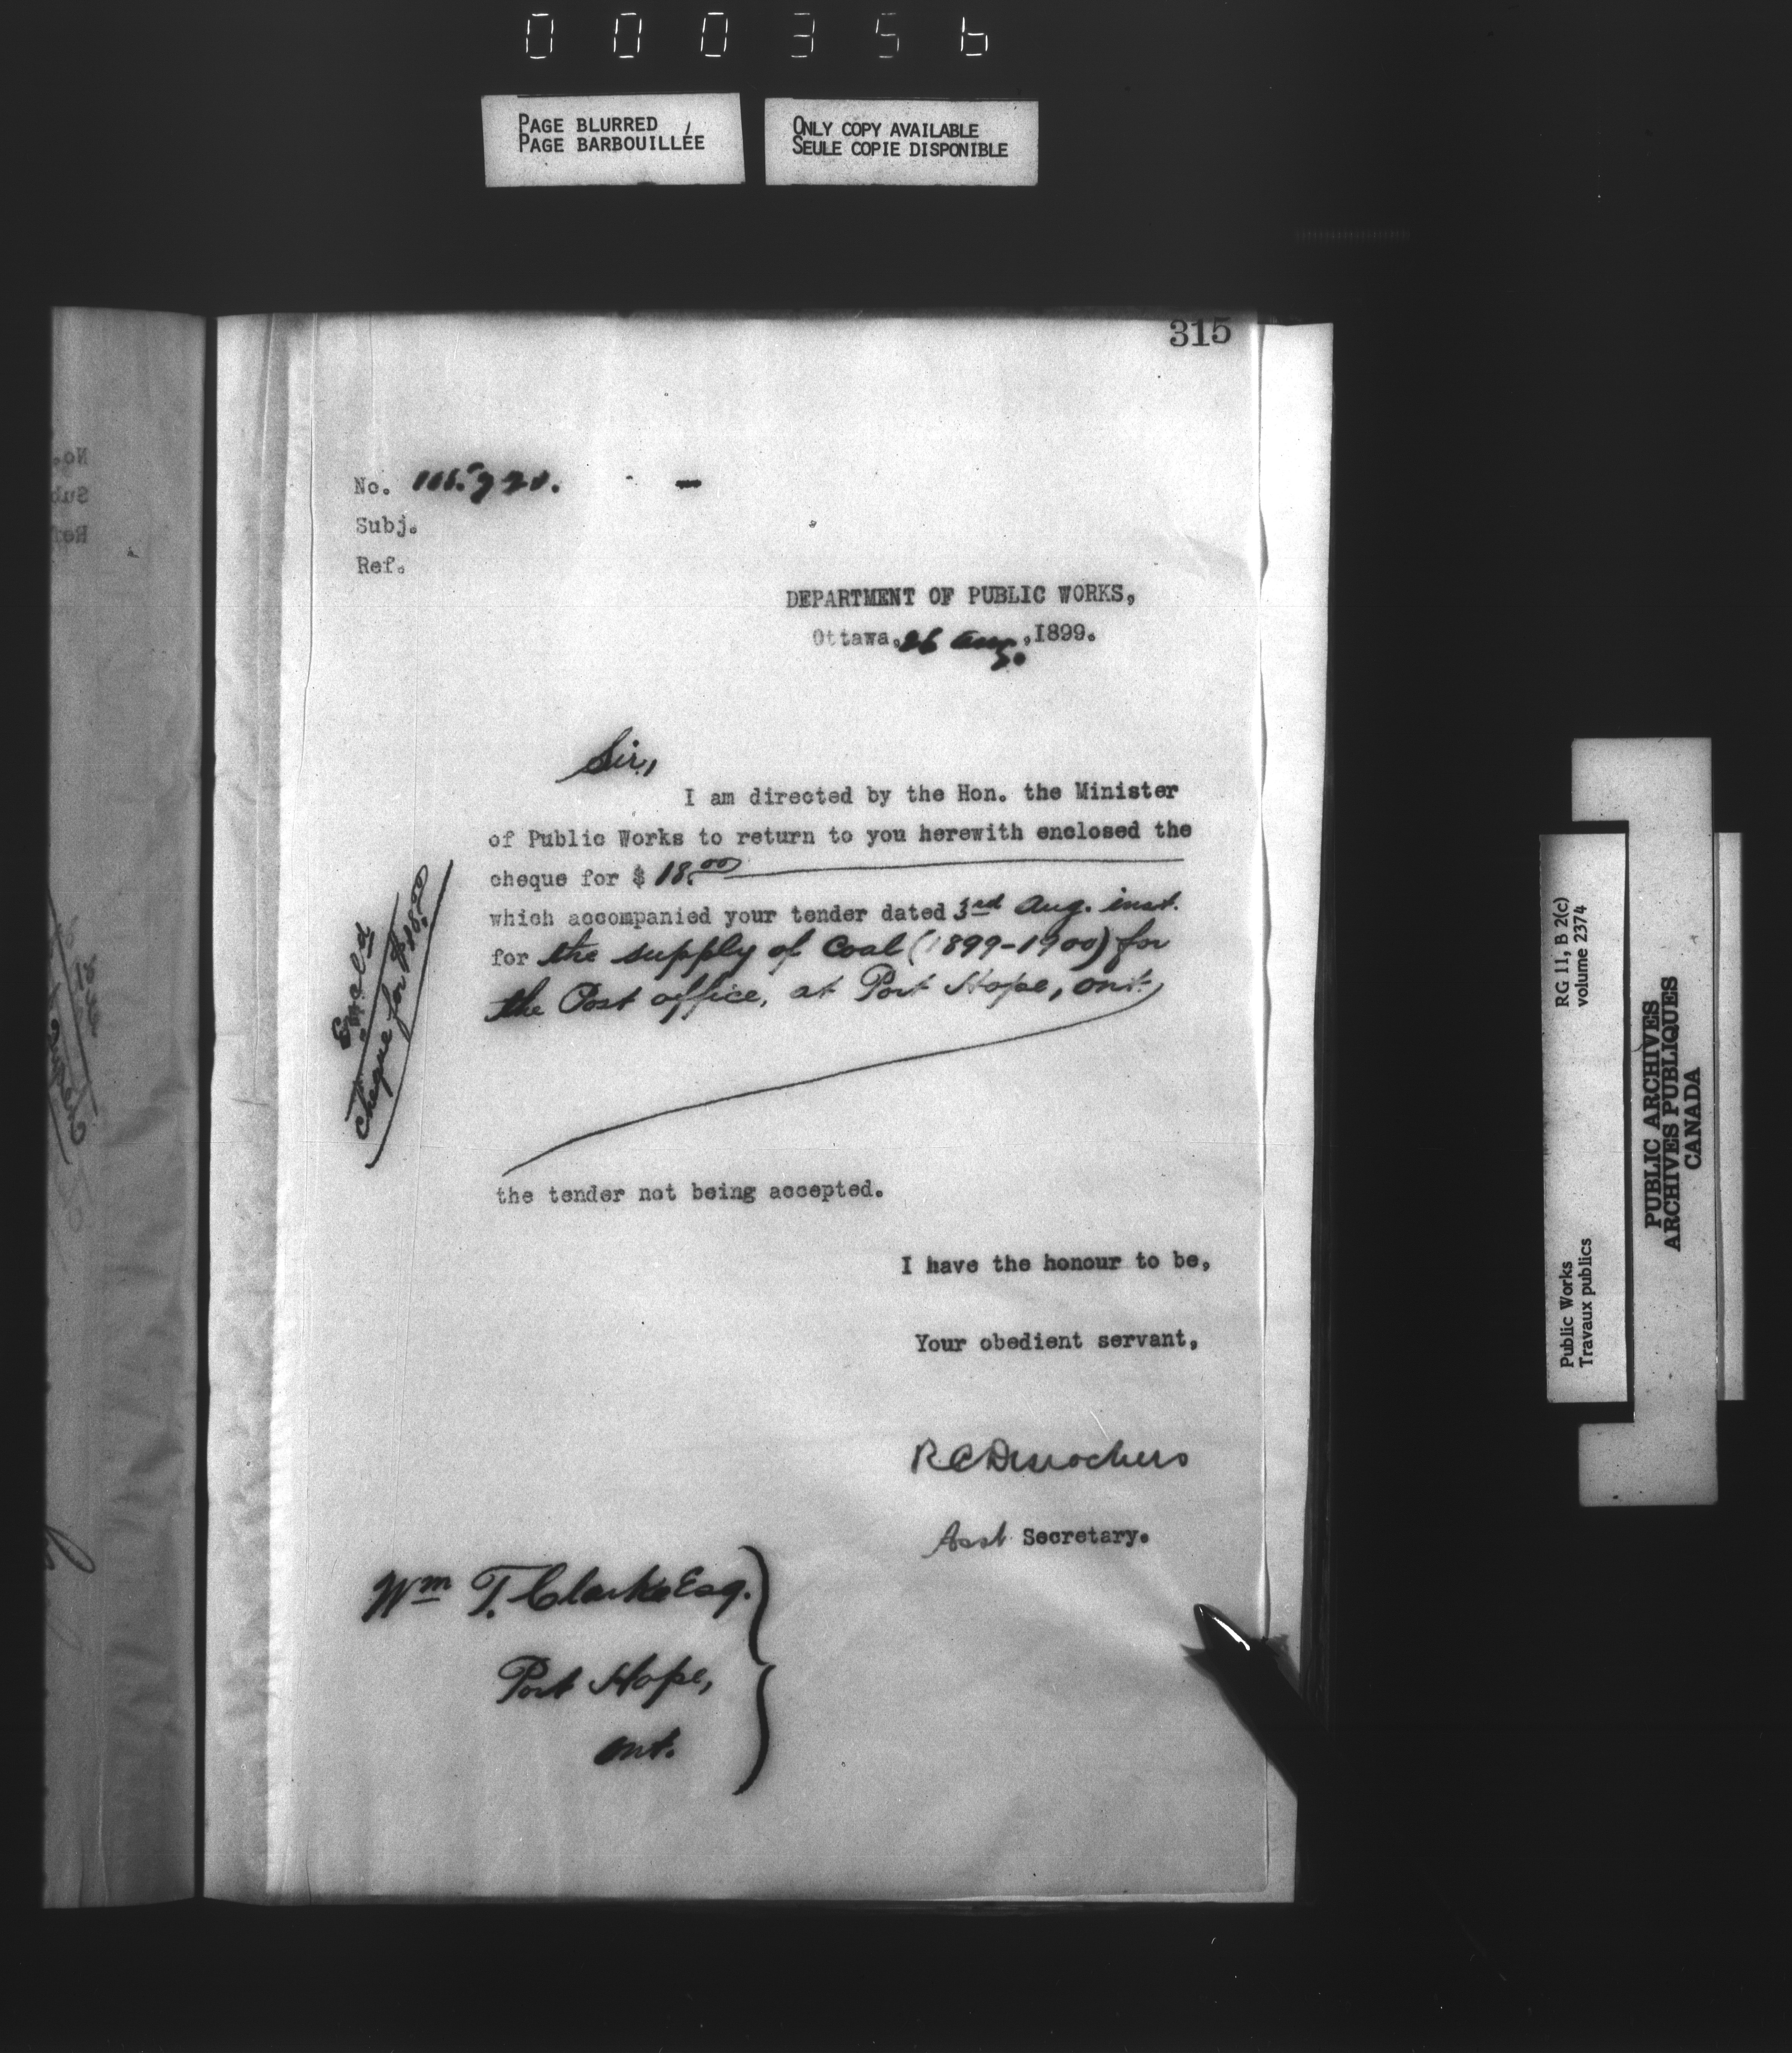 000356
PAGE BLURRED
PAGE BARBOUILLÉE
ONLY COPY AVAILABLE
SEULE COPIE DISPONIBLE
315
No.
Subj.
Ref.
DEPARTMENT OF PUBLIC WORKS,
Ottawa, 26 Aug., 1899.
Sir,
I am directed by the Hon. the Minister
of Public Works to return to you herewith enclosed the
cheque for $ 18.00
which accompanied your tender dated 3rd Aug. inst.
for the supply of Coal (1899-1900) for
the Post office, at Port Hope, Ont.
Encl'd
Cheque for $18.00
the tender not being accepted.
I have the honour to be,
Your obedient servant,
R C Desrochers
Asst Secretary.
Wm T. Clarke Esq.
Port Hope,
Ont.
RG 11, B 2(c)
volume 2374
Public Works
Travaux publics
PUBLIC ARCHIVES
ARCHIVES PUBLIQUES
CANADA